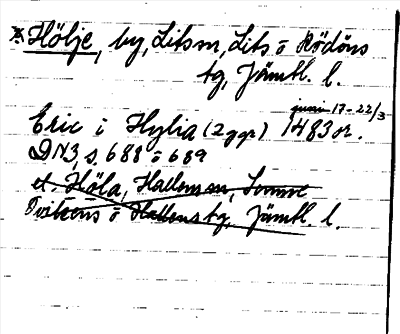 Hölje, by, Litsm, Lits o Rödöns
tg, Jämtl. l.
juni 17-22/3
Eric i Hylia (2 ggr) 1483 or.
DN3, s. 688 o 689
et. Höla, Hallenssn, Sunne
o Hallens tg, Jämtl. l.